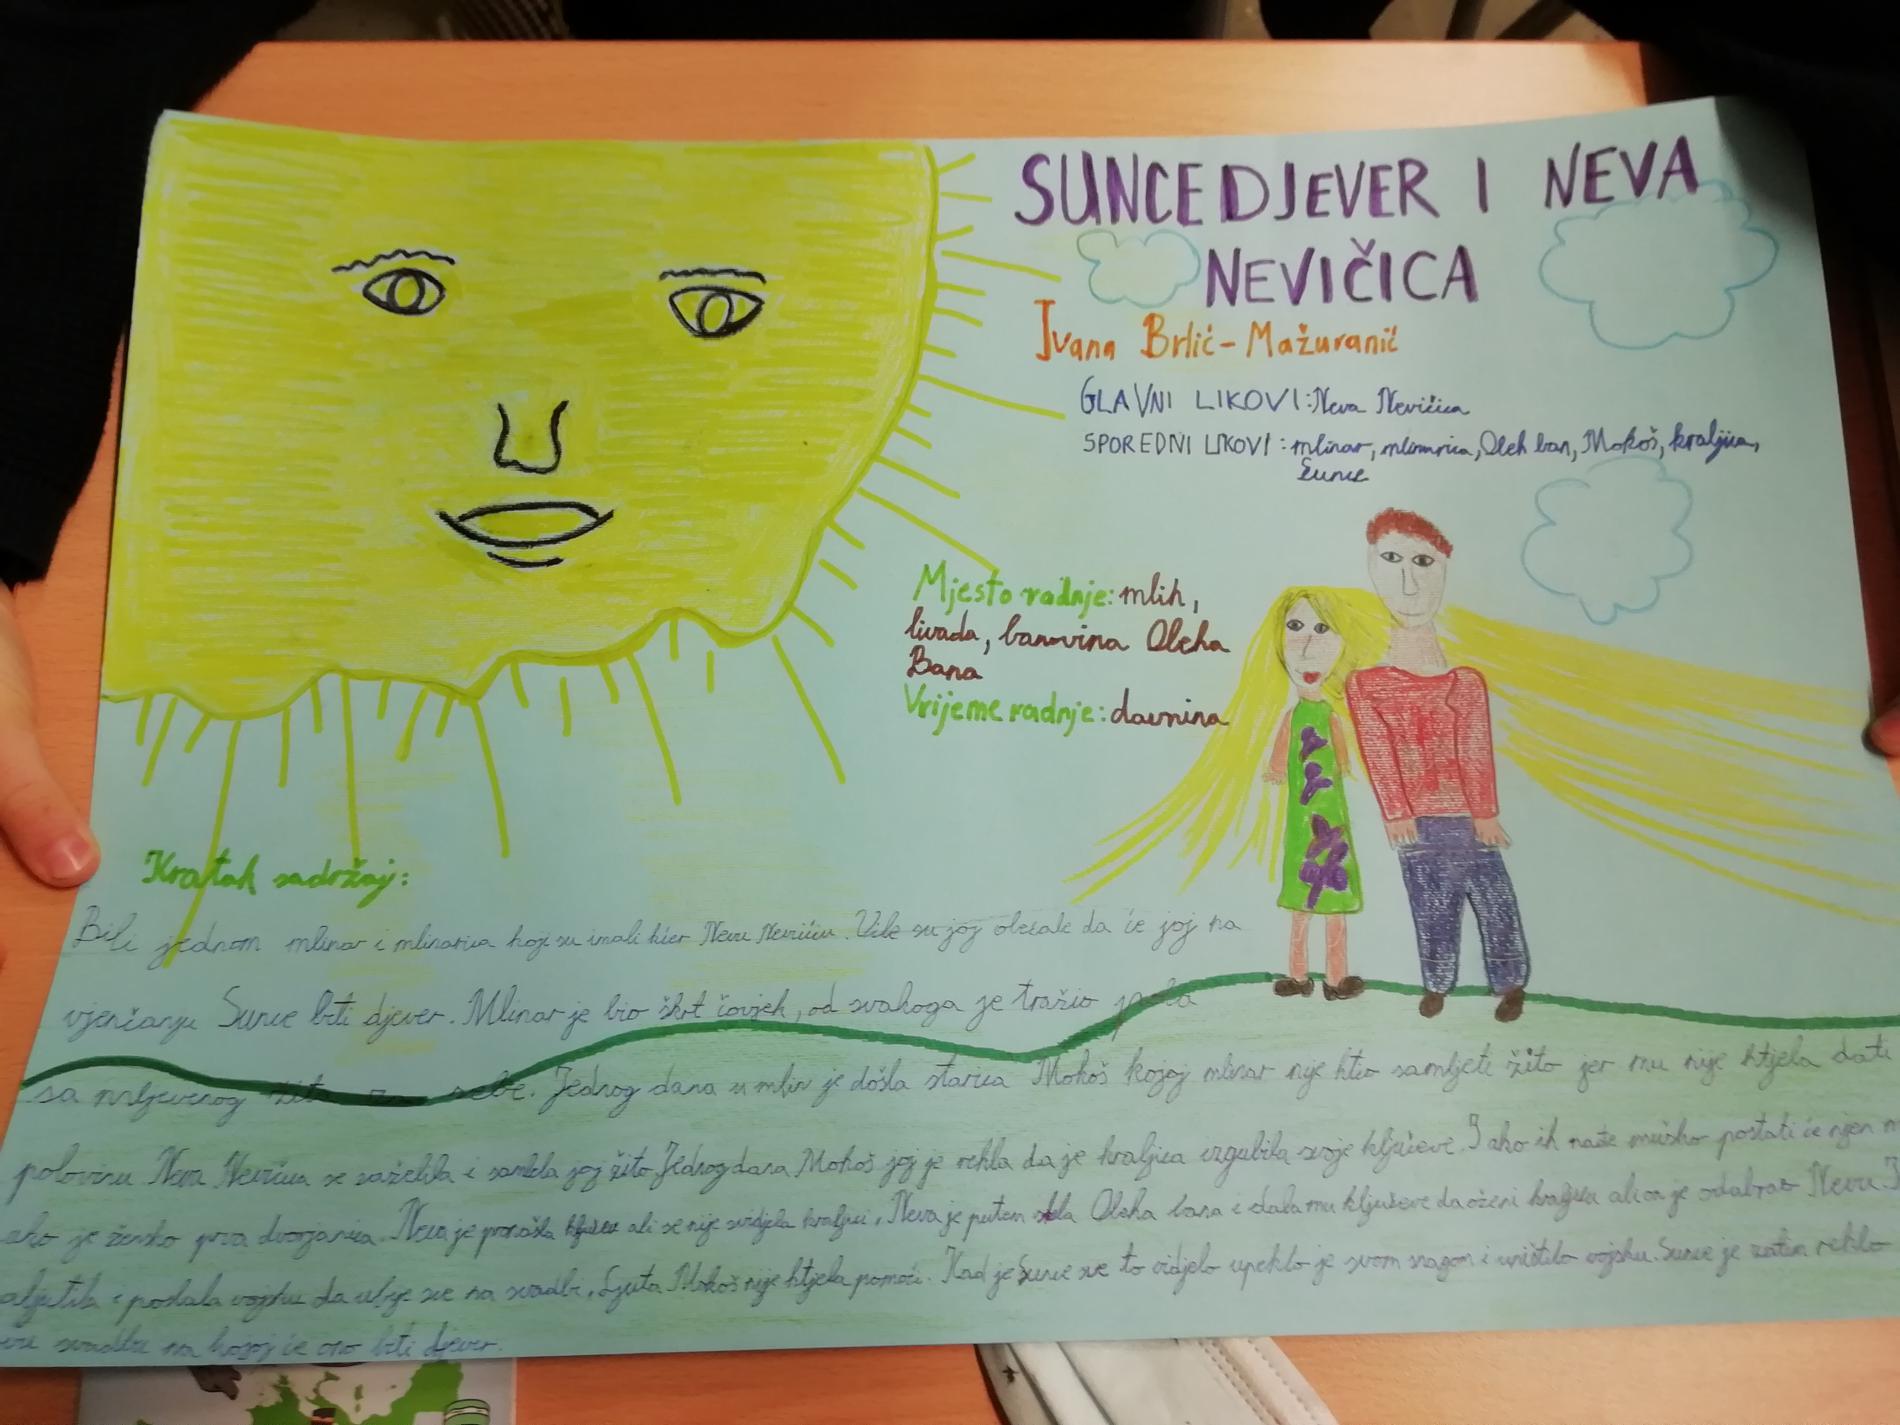 SUNCE DJEVER I NEVA
NEVIČICA
Ivana Brlić-Mažuranić
GLAVNI LIKOVI: Neva Nevičica
SPOREDNI LIKOVI: mlinar, mlinarica, Oleh ban, Mokoš, kraljica,
Sunce
Mjesto radnje: mlin,
livada, banovina Oleha
Bana
Vrijeme radnje: davnina
Kratak sadržaj:
Bili jednom mlinar i mlinarica koji su imali kćer Nevu Nevičicu. Vile su joj obećale da će joj na
vjenčanju Sunce biti djever. Mlinar je bio škrt čovjek, od svakoga je tražio pola
samljevenog žita za sebe. Jednog dana u mlin je došla starica Mokoš kojoj mlinar nije htio samljeti žito jer mu nije htjela dati
polovinu. Neva Nevičica se sažalila i samlela joj žito. Jednog dana Mokoš joj je rekla da je kraljica izgubila svoje ključeve. I ako ih nađe muško postati će njen
ako je žensko prva dvorjanica. Neva je pronašla ključeve ali se nije svidjela kraljici. Neva je putem srela Oleha bana i dala mu ključeve da oženi kraljicu ali on je odabrao Nevu.
i poslala vojsku da ubije sve na svadbi. Ljuta Mokoš nije htjela pomoći. Kad je Sunce sve to vidjelo upeklo je svom snagom i uništilo vojsku. Sunce je zatim reklo
svadbu na kojoj će ono biti djever.